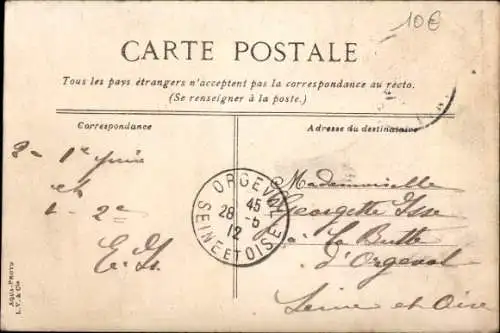 10€
CARTE POSTALE
Tous les pays étrangers n'acceptent pas la correspondance au recto.
(Se renseigner à la poste.)
Correspondance
Adresse du destinataire
2 - 1e
et
1 - 2e
ORGEVAL
45
28 -5
12
SEINE ET OISE
Mademoiselle
Georgette
à La Butte
d'Orgeval
Seine et Oise
AQUA-PHOTO
L.V. & Cie